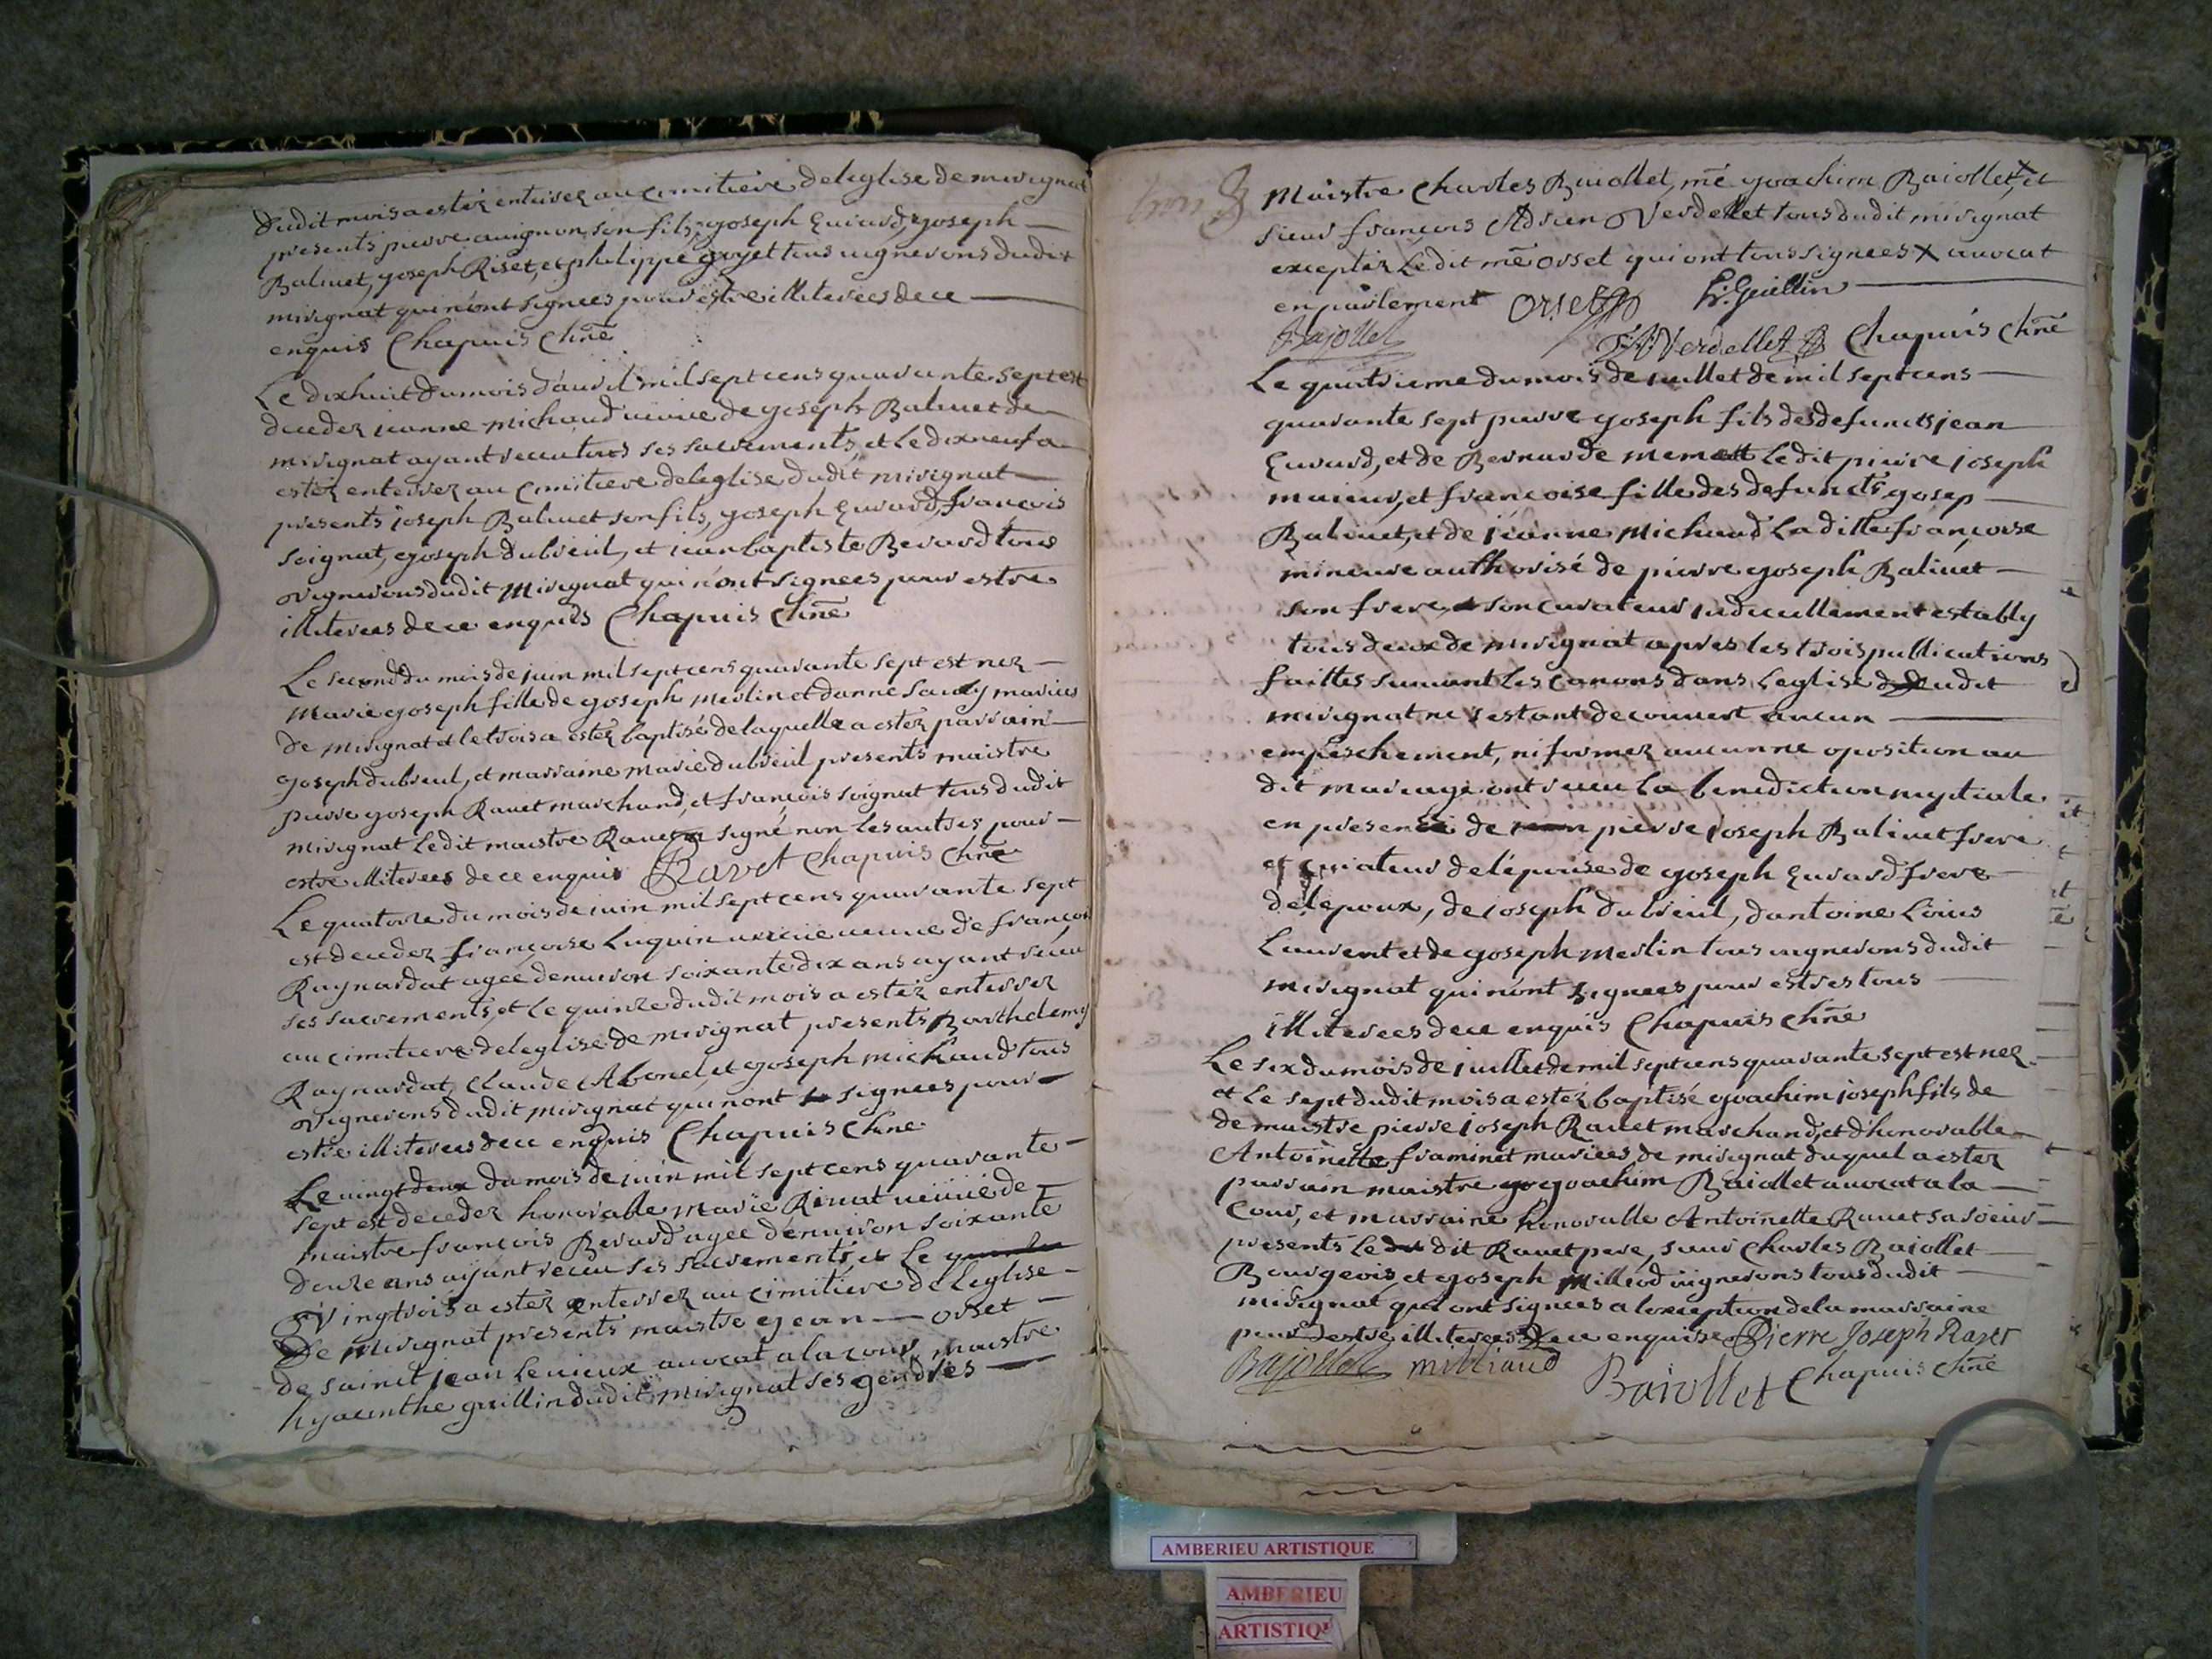 dudit mois a estéz enterrez au cimitiere deleglise de mirignat
presents pierre auignon son fils, joseph Euvard, joseph
Balivet, joseph Riset, et philippe goyet tous vignerons dudit
mirignat qui n'ont signees pour estre illiterees de ce
enquis Chapuis Chne
Le dixhuit du mois d'avril mil sept cens quarante sept est
decedez jeanne michaud veuve de joseph Balivet de
mirignat ayant receu tous ses sacrements, et le dixneuf a
estéz enterrez au cimitiere deleglise dudit mirignat
presents joseph Balivet son fils, joseph Euvard, françois
soignat, joseph dubreüil, et jean baptiste Berard tous
vignerons dudit mirignat qui n'ont signees pour estre
illiterees de ce enquis Chapuis Chne
Le second du mois de juin mil sept cens quarante sept est nez
marie joseph fille de joseph merlin et danne mariees
de mirignat et le trois a estéz baptisé de laquelle a estéz parrain
joseph dubreul, et marraine marie dubreüil presents maistre
pierre joseph Ravet marchand, et françois soignat tous dudit
mirignat Ledit maistre Ravet a signé non les autres pour
estre illiterees de ce enquis Ravet Chapuis Chne
Le quatorze du mois de juin mil sept cens quarante sept
est decedez françoise Luquin veuve de françois
Raynardat agee denviron soixante dix ans ayant receu
ses sacrements, et le quinze dudit mois a estéz enterrez
au cimitiere deleglise de mirignat presents Barthelemy
Raynardat, Claude Abonel et joseph michaud tous
vignerons dudit mirignat qui nont signees pour
estre illiterees de ce enquis Chapuis Chne
Le vingt deux du mois de juin mil sept cens quarante
sept est decedez honorable marie Rivat veüve de
maistre françois Berard agee d'environ soixante
douze ans ayant receu ses sacrements, et Le
vingtrois a estéz enterrez au cimitiere de leglise
de mirignat presents maistre jean orset
de sainct jean le vieux avocat a la cour, maistre
hyacinthe guillin dudit mirignat ses gendres
Maistre Charles Baiollet, me joachim Baiollet x et
sieur françois Adrien Verdellet tous dudit mirignat
exceptéz Ledit me orset qui ont tous signees x avocat
en parlement Orset h: Guillin
Bajollet F A Verdellet Chapuis Chne
Le quatrieme du mois de juillet de mil sept cens
quarante sept pierre joseph fils des defuncts jean
Euvard, et de Bernarde Ledit pierre joseph
maieur, et françoise fille des defuncts josep
Balivet, et de jeanne michaud La ditte françoise
mineure authorisé de pierre joseph Balivet
son frere, son curateur judiciellement estably
tous deux de mirignat apres les trois publications
faittes suivant Les Canons dans Leglise dudit
mirignat ne s'estant decouvert aucun
empeschement, ni formez aucunne oposition au
dit mariage ont receu la benediction nuptiale
en presence de pierre joseph Balivet frere
et curateur de lépouse de joseph Euvard frere
de lepoux, de joseph dubreüil, dantoine Loüis
Laurent et de joseph merlin tous vignerons dudit
mirignat qui n'ont signees pour estres tous
illiterees de ce enquis Chapuis Chne
Le six du mois de juillet de mil sept cens quarante sept est nez
et Le sept dudit mois a estéz baptisé joachim joseph fils de
de maistre pierre joseph Ravet marchand, et d'honorable
Antoinette framinet mariees de mirignat duquel a estéz
parrain maistre joachim Baiollet avocat a la
Cour, et marraine honorable Antoinette Ravet sa soeur
presents Le dit Ravet pere, sieur Charles Baiollet
Bourgeois, et joseph vignerons tous dudit
mirignat qui ont signees a l'exception de la marraine
pour estre illiterees de ce enquise Pierre Joseph Ravet
Bajollet milliaud Baiollet Chapuis Chne
AMBERIEU ARTISTIQUE
AMBERIEU
ARTISTIQ